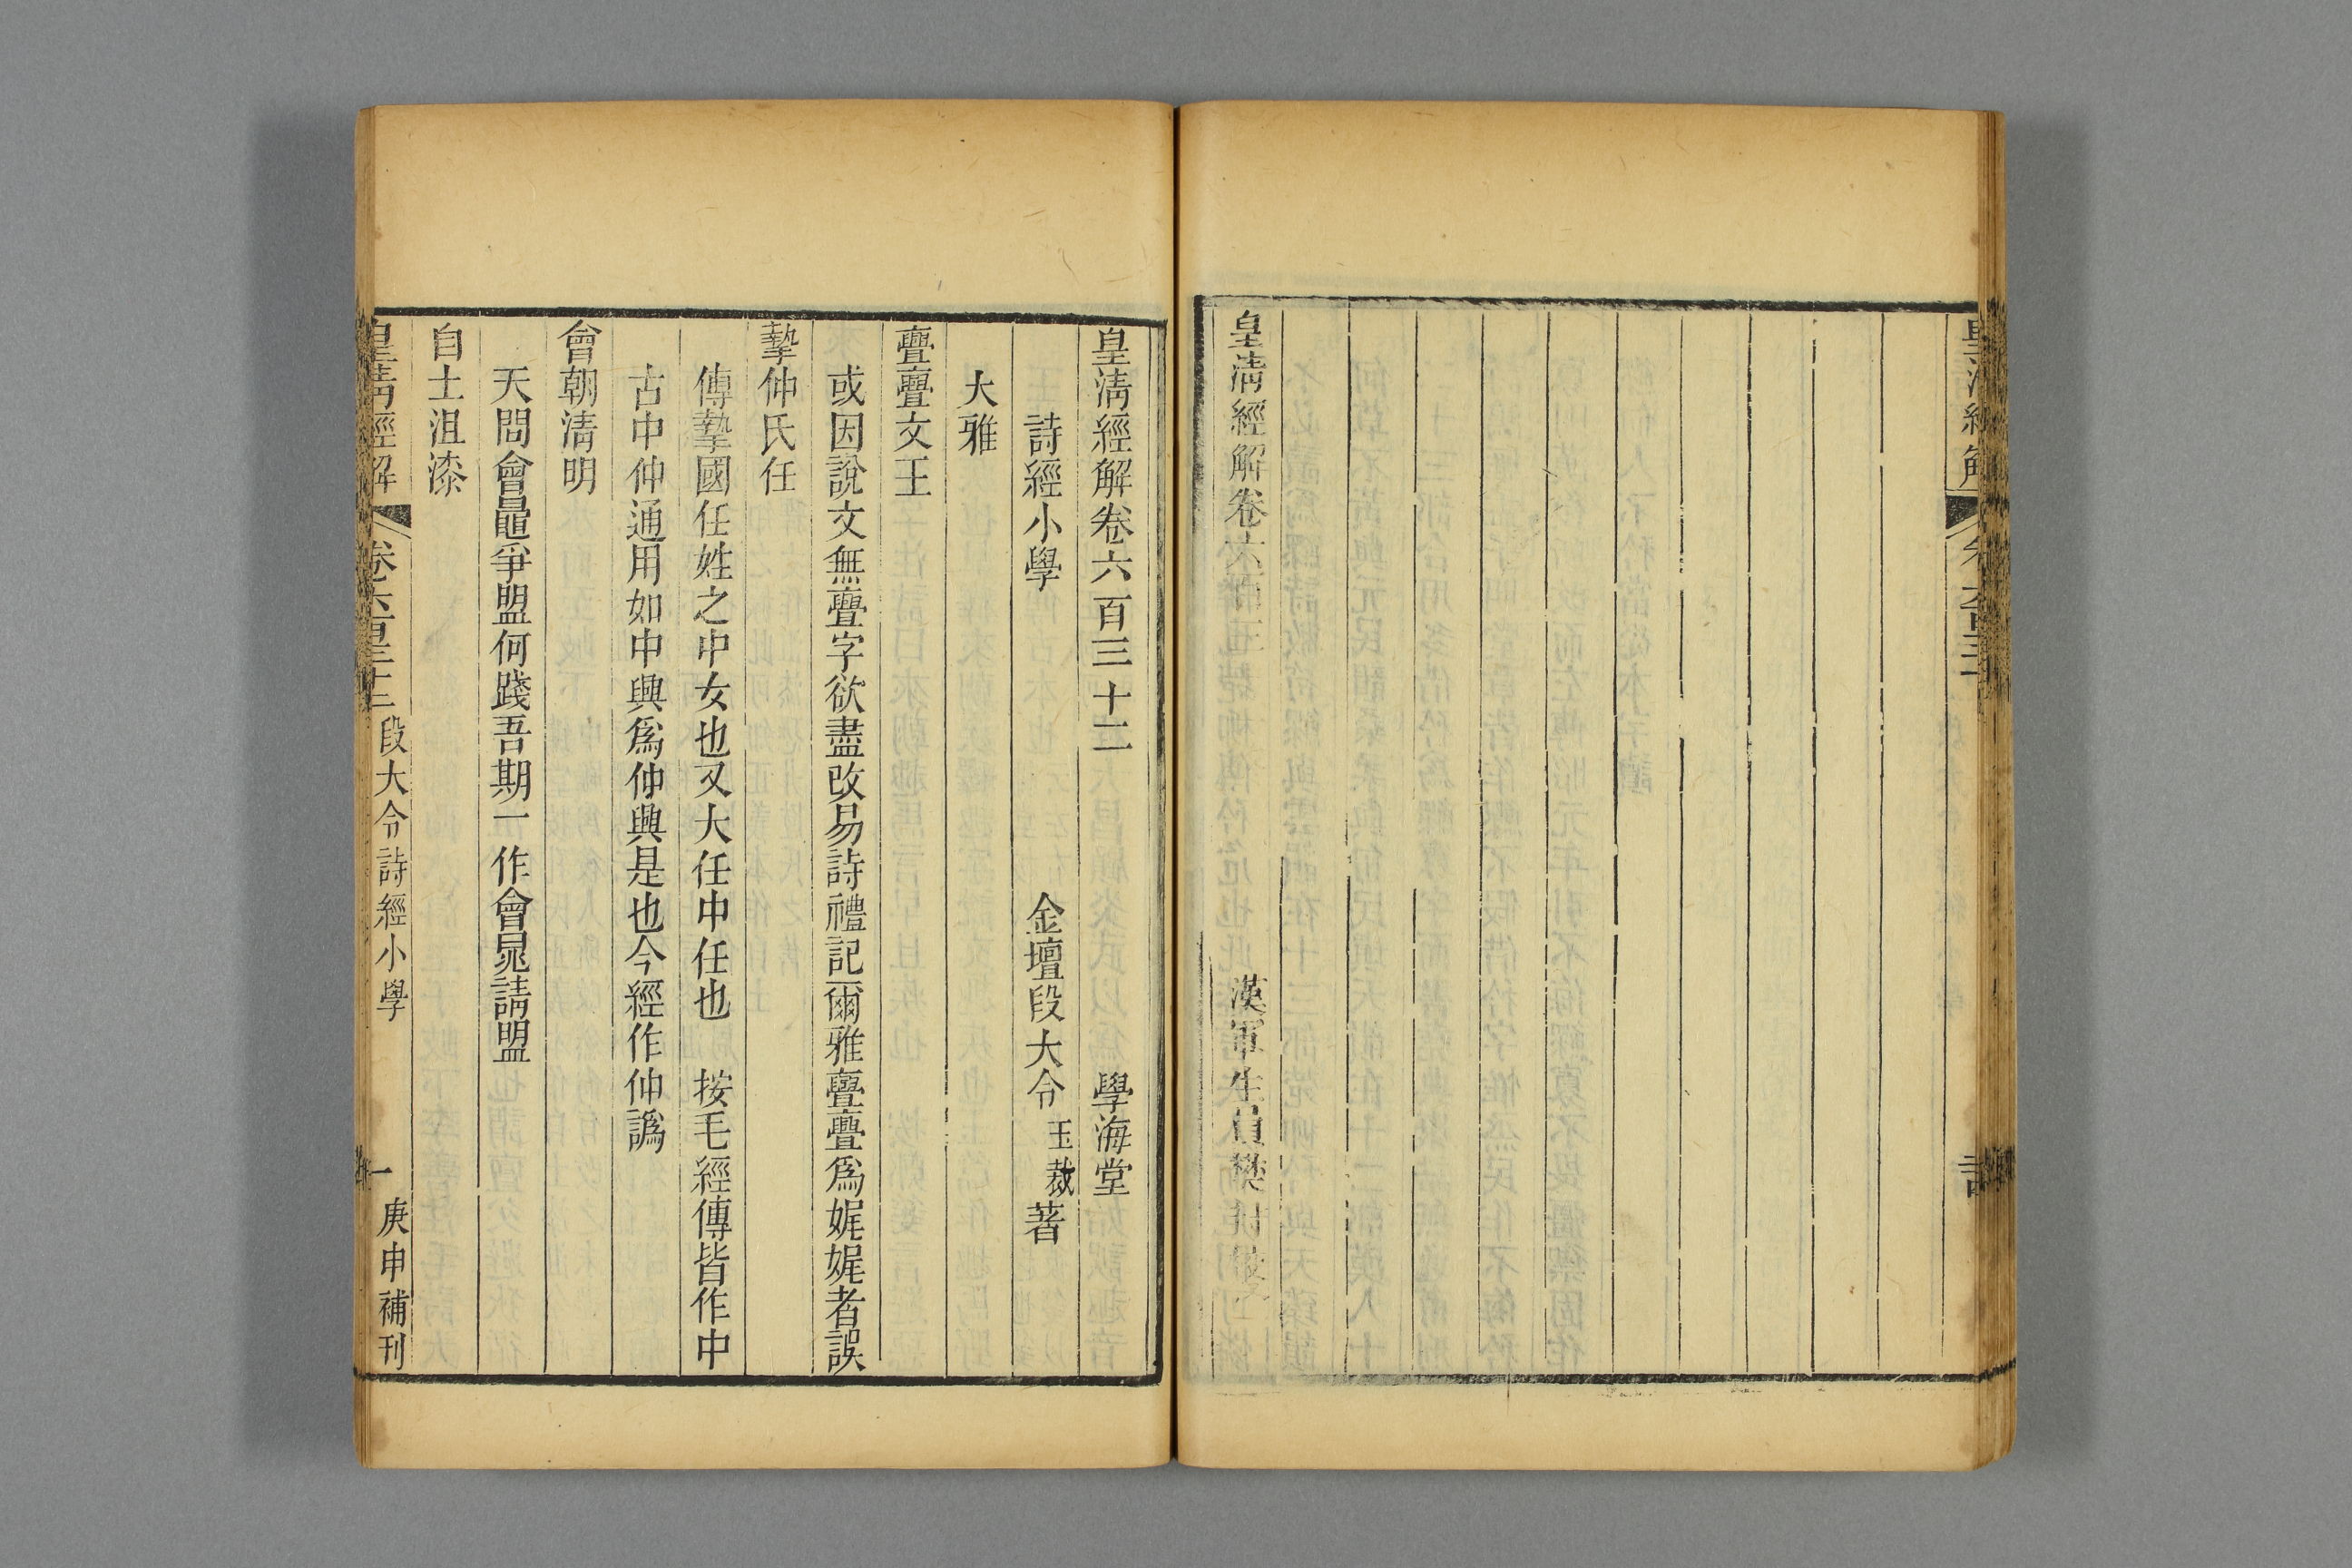 皇清經解
皇清經解卷六百三十一
漢軍生員樊封校
皇清經解卷六百三十二 學海堂
詩經小學 金壇段大令玉裁著
大雅
亹亹文王
或因說文無亹字欲盡改易詩禮記爾雅亹亹爲娓娓者誤
摯仲氏任
傳摯國任姓之中女也又大任中任也 按毛經傳皆作中
古中仲通用如中興爲仲興是也今經作仲譌
會朝清明
天問會鼂爭盟何踐吾期一作會鼂請盟
自土沮漆
皇清經解 卷六百三十二 段大令詩經小學 一 庚申補刊